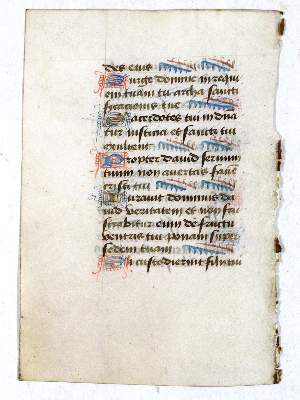 des eius
Surge domine in requi
em tuam tu et archa sancti
ficacionis tue
Sacerdotes tui indua
tur iusticia et sancti tui
exultent
Propter dauid seruum
tuum non auertas facie
cristi tui
Iurauit dominus da
uid ueritatem et non fru
strabitur eum de fructu
ventris tui ponam super
sedem tuam
Si custodierint filii tui